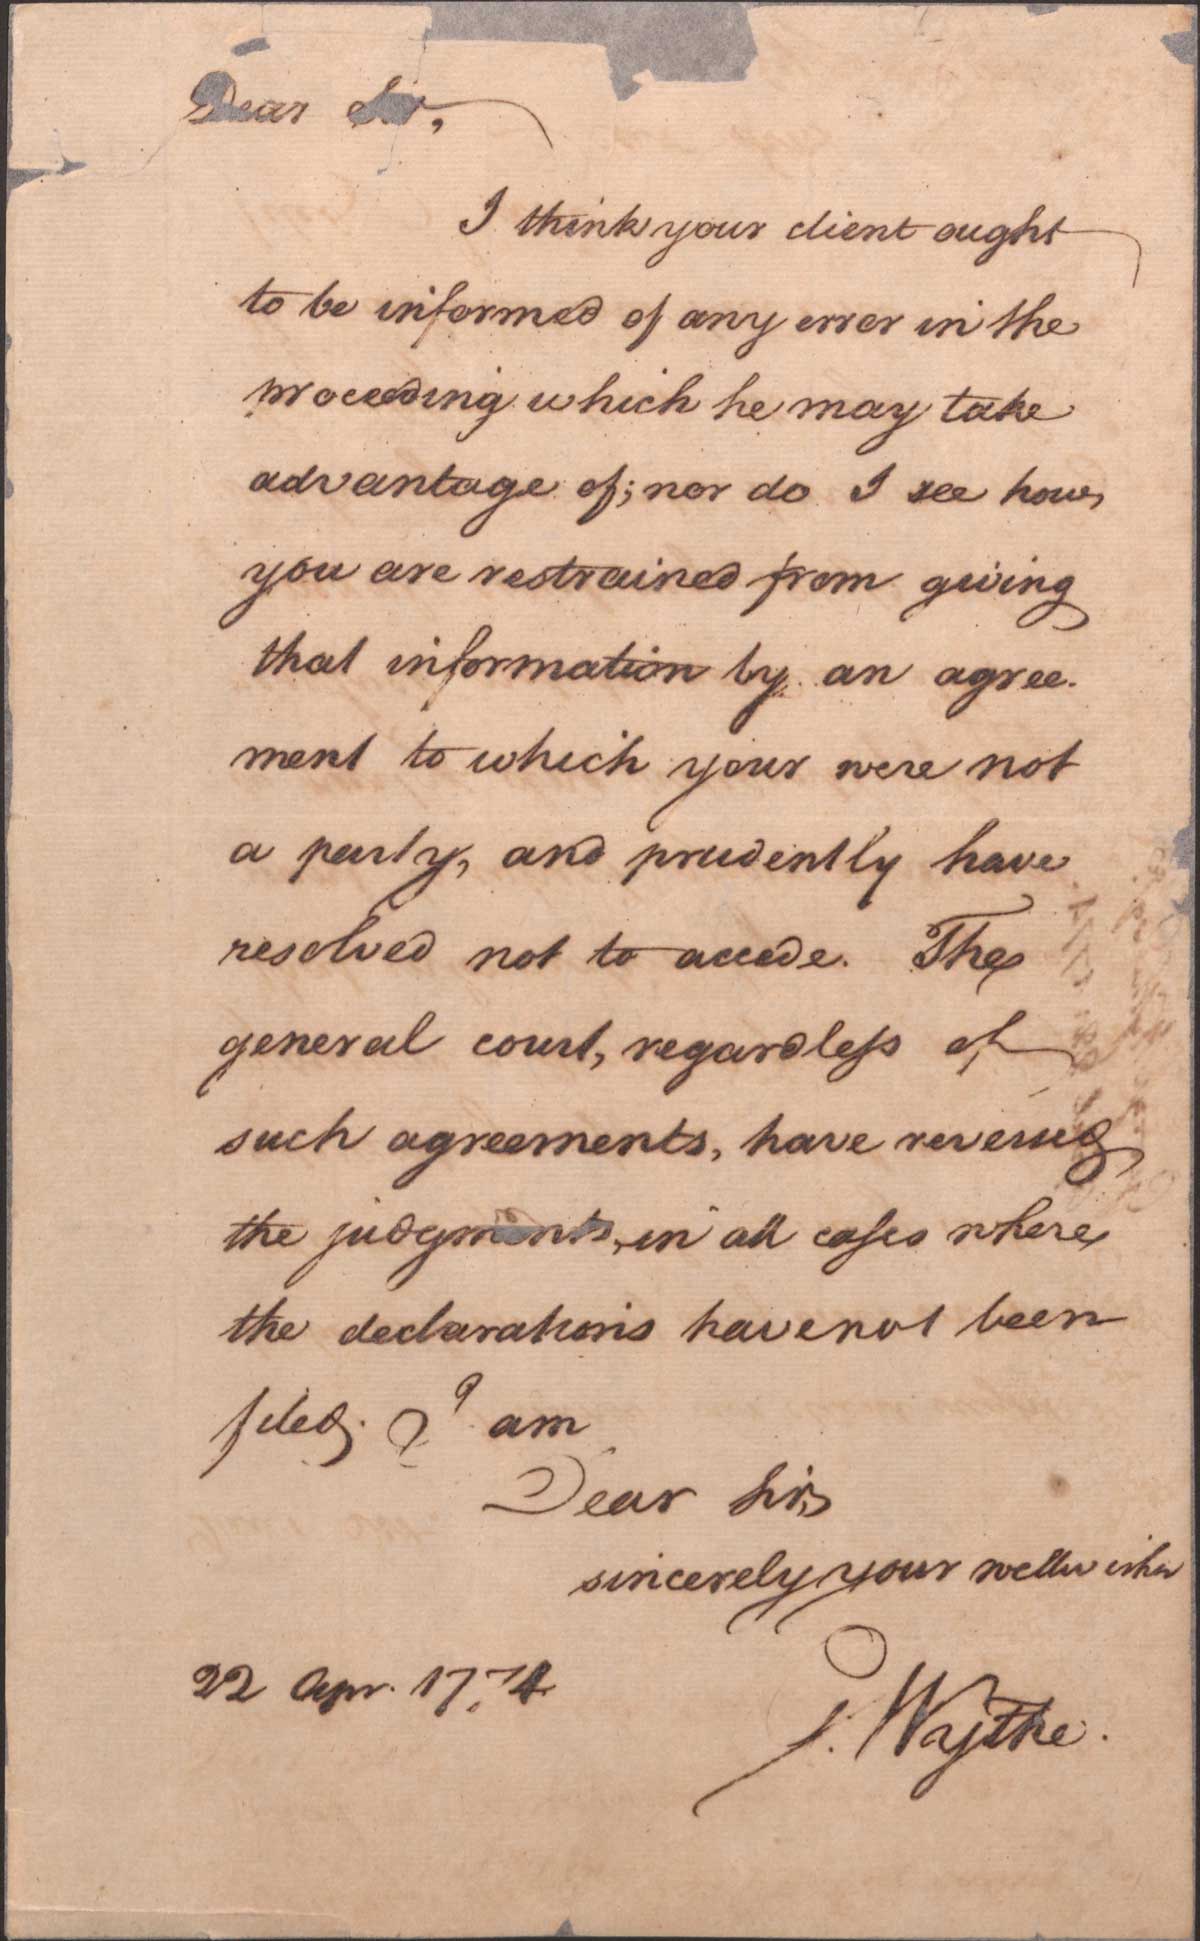 Dear Sir,
I think your client ought
to be informed of any error in the
proceeding which he may take
advantage of; nor do I see how
you are restrained from giving
that information by an agree-
ment to which your were not
a party, and prudently have
resolved not to accede. The
general court, regardless of
such agreements, have reversed
the judgments, in all cases where
the declarations have not been
filed. I am
Dear Sir,
sincerely your wellwisher
22 Apr. 1774
G. Wythe.